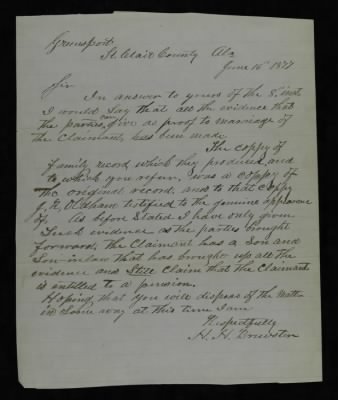 Greensport
St. Clair County Ala
June 16th 1877
Sir
In answer to yours of the 8" inst
I would say that all the evidence that
the parties can give as proof to marriage of
the Claimant, has been made
The coppy of
family record which they produced and
to which you refer, was a coppy of
the original record, and to that coppy
Oldham testified to the genuine
of. As before Stated I have only given
Such evidence as the parties brought
forward, the Claimant has a Son and
Son-in-law that has brought up all the
evidence and Still Claim that the Claimant
is entitled to a pension.
Hoping that you will dispose of the Matter
in Some way at this time I am
Respectfully
H. H. Brewster